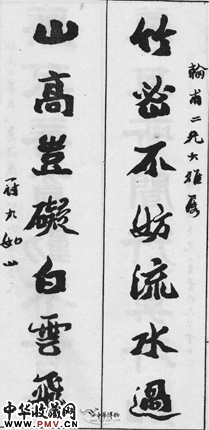 翰甫二兄大雅屬
竹密不妨流水過
山高豈礙白雲飛
中华收藏网
WWW.PMV.CN